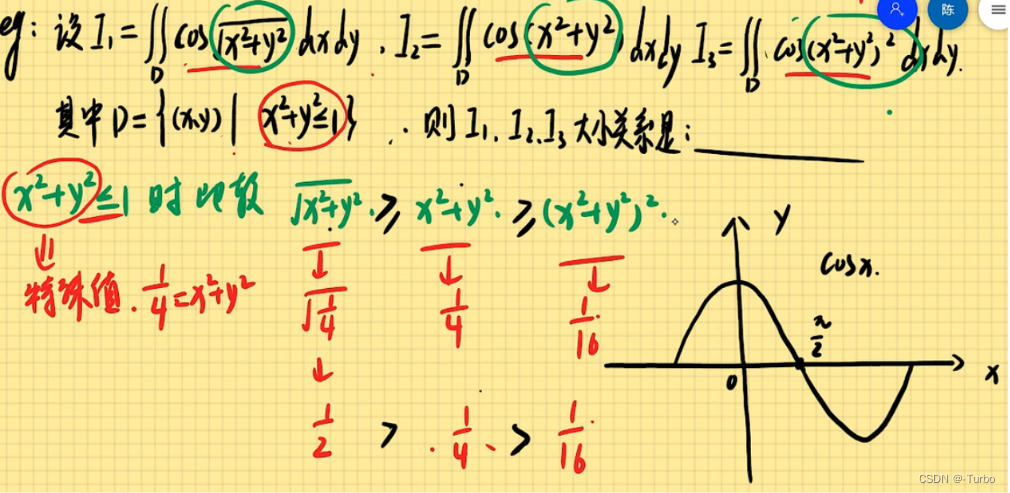 eg: 设 I₁ = ∬_D cos√(x²+y²) dxdy . I₂ = ∬_D cos(x²+y²) dxdy I₃ = ∬_D cos(x²+y²)² dxdy.
其中 D = {(x,y) | x²+y²≤1} . 则 I₁. I₂. I₃ 大小关系是: ______
x²+y²≤1 时 比较 √(x²+y²) . ≥ x²+y² . ≥ (x²+y²)² .
特殊值. 1/4 = x²+y² √(1/4) 1/4 1/16
1/2 > 1/4 > 1/16
y
cosx.
π/2
0
x
陈
CSDN @-Turbo